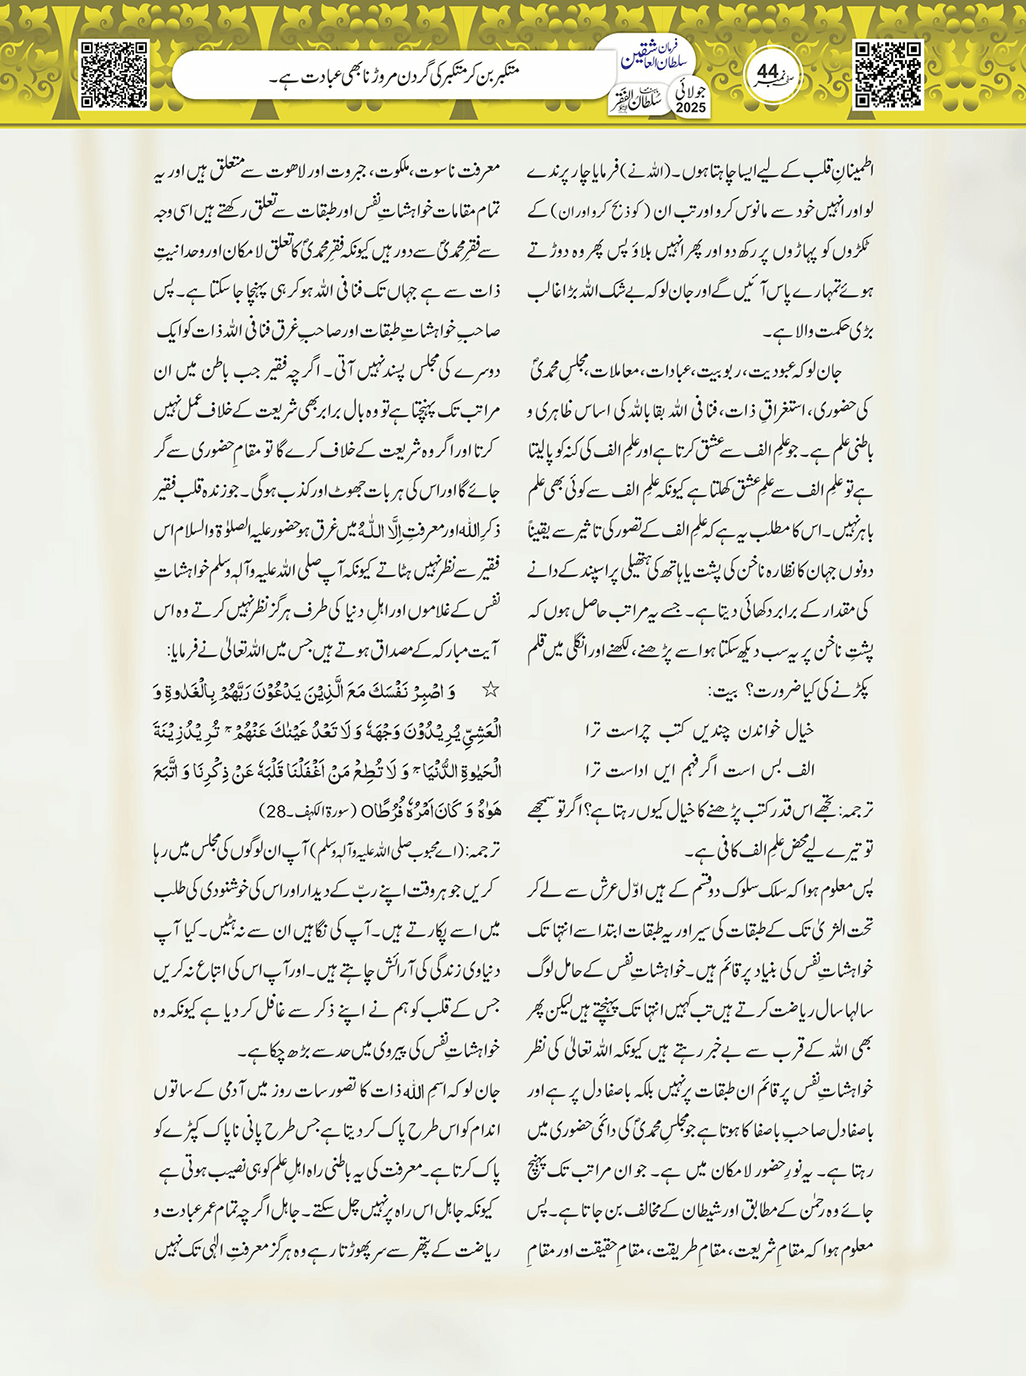 متکبر بن کر متکبر کی گردن مروڑنا بھی عبادت ہے۔
فرمان
سلطان العاشقین
ماہنامہ سلطان الفقر لاہور
جولائی
2025
صفحہ نمبر 44
اطمینانِ قلب کے لیے ایسا چاہتا ہوں۔ (اللہ نے) فرمایا چار پرندے
لو اور انہیں خود سے مانوس کرو اور تب ان (کو ذبح کرو اور ان) کے
ٹکڑوں کو پہاڑوں پر رکھ دو اور پھر انہیں بلاؤ پس پھر وہ دوڑتے
ہوئے تمہارے پاس آئیں گے اور جان لو کہ بے شک اللہ بڑا غالب
بڑی حکمت والا ہے۔
جان لو کہ عبودیت، ربوبیت، عبادات، معاملات، مجلسِ محمدیؐ
کی حضوری، استغراقِ ذات، فنا فی اللہ بقا باللہ کی اساس ظاہری و
باطنی علم ہے۔ جو علمِ الف سے عشق کرتا ہے اور علمِ الف کی کنہ کو پا لیتا
ہے تو علمِ الف سے علمِ عشق کھلتا ہے کیونکہ علمِ الف سے کوئی بھی علم
باہر نہیں۔ اس کا مطلب یہ ہے کہ علمِ الف کے تصور کی تاثیر سے یقیناً
دونوں جہان کا نظارہ ناخن کی پشت یا ہاتھ کی ہتھیلی پر اسپند کے دانے
کی مقدار کے برابر دکھائی دیتا ہے۔ جسے یہ مراتب حاصل ہوں کہ
پشتِ ناخن پر یہ سب دیکھ سکتا ہو اسے پڑھنے، لکھنے اور انگلی میں قلم
پکڑنے کی کیا ضرورت؟ بیت:
خیال خواندن چندیں کتب چراست ترا
الف بس است اگر فہم ایں اداست ترا
ترجمہ: تجھے اس قدر کتب پڑھنے کا خیال کیوں رہتا ہے؟ اگر تو سمجھے
تو تیرے لیے محض علمِ الف کافی ہے۔
پس معلوم ہوا کہ سلک سلوک دو قسم کے ہیں اوّل عرش سے لے کر
تحت الثریٰ تک کے طبقات کی سیر اور یہ طبقات ابتدا سے انتہا تک
خواہشاتِ نفس کی بنیاد پر قائم ہیں۔ خواہشاتِ نفس کے حامل لوگ
سالہا سال ریاضت کرتے ہیں تب کہیں انتہا تک پہنچتے ہیں لیکن پھر
بھی اللہ کے قرب سے بے خبر رہتے ہیں کیونکہ اللہ تعالیٰ کی نظر
خواہشاتِ نفس پر قائم ان طبقات پر نہیں بلکہ باصفا دل پر ہے اور
باصفا دل صاحبِ باصفا کا ہوتا ہے جو مجلسِ محمدیؐ کی دائمی حضوری میں
رہتا ہے۔ یہ نورِ حضور لامکان میں ہے۔ جو ان مراتب تک پہنچ
جائے وہ رحمٰن کے مطابق اور شیطان کے مخالف بن جاتا ہے۔ پس
معلوم ہوا کہ مقامِ شریعت، مقامِ طریقت، مقامِ حقیقت اور مقامِ
معرفت ناسوت، ملکوت، جبروت اور لاھوت سے متعلق ہیں اور یہ
تمام مقامات خواہشاتِ نفس اور طبقات سے تعلق رکھتے ہیں اسی وجہ
سے فقرِ محمدیؐ سے دور ہیں کیونکہ فقرِ محمدیؐ کا تعلق لامکان اور وحدانیتِ
ذات سے ہے جہاں تک فنا فی اللہ ہو کر ہی پہنچا جا سکتا ہے۔ پس
صاحبِ خواہشاتِ طبقات اور صاحبِ غرق فنا فی اللہ ذات کو ایک
دوسرے کی مجلس پسند نہیں آتی۔ اگرچہ فقیر جب باطن میں ان
مراتب تک پہنچتا ہے تو وہ بال برابر بھی شریعت کے خلاف عمل نہیں
کرتا اور اگر وہ شریعت کے خلاف کرے گا تو مقامِ حضوری سے گر
جائے گا اور اس کی ہر بات جھوٹ اور کذب ہوگی۔ جو زندہ قلب فقیر
ذکرِ اللہ اور معرفتِ اِلَّا اللّٰہُ میں غرق ہو حضور علیہ الصلوٰۃ والسلام اس
فقیر سے نظر نہیں ہٹاتے کیونکہ آپ صلی اللہ علیہ وآلہٖ وسلم خواہشاتِ
نفس کے غلاموں اور اہلِ دنیا کی طرف ہرگز نظر نہیں کرتے وہ اس
آیت مبارکہ کے مصداق ہوتے ہیں جس میں اللہ تعالیٰ نے فرمایا:
☆ وَ اصْبِرْ نَفْسَكَ مَعَ الَّذِیْنَ یَدْعُوْنَ رَبَّهُمْ بِالْغَدٰوةِ وَ
الْعَشِیِّ یُرِیْدُوْنَ وَجْهَهٗ وَ لَا تَعْدُ عَیْنٰكَ عَنْهُمْ ۚ تُرِیْدُ زِیْنَةَ
الْحَیٰوةِ الدُّنْیَا ۚ وَ لَا تُطِعْ مَنْ اَغْفَلْنَا قَلْبَهٗ عَنْ ذِكْرِنَا وَ اتَّبَعَ
هَوٰىهُ وَ كَانَ اَمْرُهٗ فُرُطًا O (سورۃ الکہف۔28)
ترجمہ: (اے محبوب صلی اللہ علیہ وآلہٖ وسلم) آپ ان لوگوں کی مجلس میں رہا
کریں جو ہر وقت اپنے ربّ کے دیدار اور اس کی خوشنودی کی طلب
میں اسے پکارتے ہیں۔ آپ کی نگاہیں ان سے نہ ہٹیں۔ کیا آپ
دنیاوی زندگی کی آرائش چاہتے ہیں۔ اور آپ اس کی اتباع نہ کریں
جس کے قلب کو ہم نے اپنے ذکر سے غافل کر دیا ہے کیونکہ وہ
خواہشاتِ نفس کی پیروی میں حد سے بڑھ چکا ہے۔
جان لو کہ اسمِ اللہ ذات کا تصور سات روز میں آدمی کے ساتوں
اندام کو اس طرح پاک کر دیتا ہے جس طرح پانی ناپاک کپڑے کو
پاک کرتا ہے۔ معرفت کی یہ باطنی راہ اہلِ علم کو ہی نصیب ہوتی ہے
کیونکہ جاہل اس راہ پر نہیں چل سکتے۔ جاہل اگرچہ تمام عمر عبادت و
ریاضت کے پتھر سے سر پھوڑتا رہے وہ ہرگز معرفتِ الٰہی تک نہیں